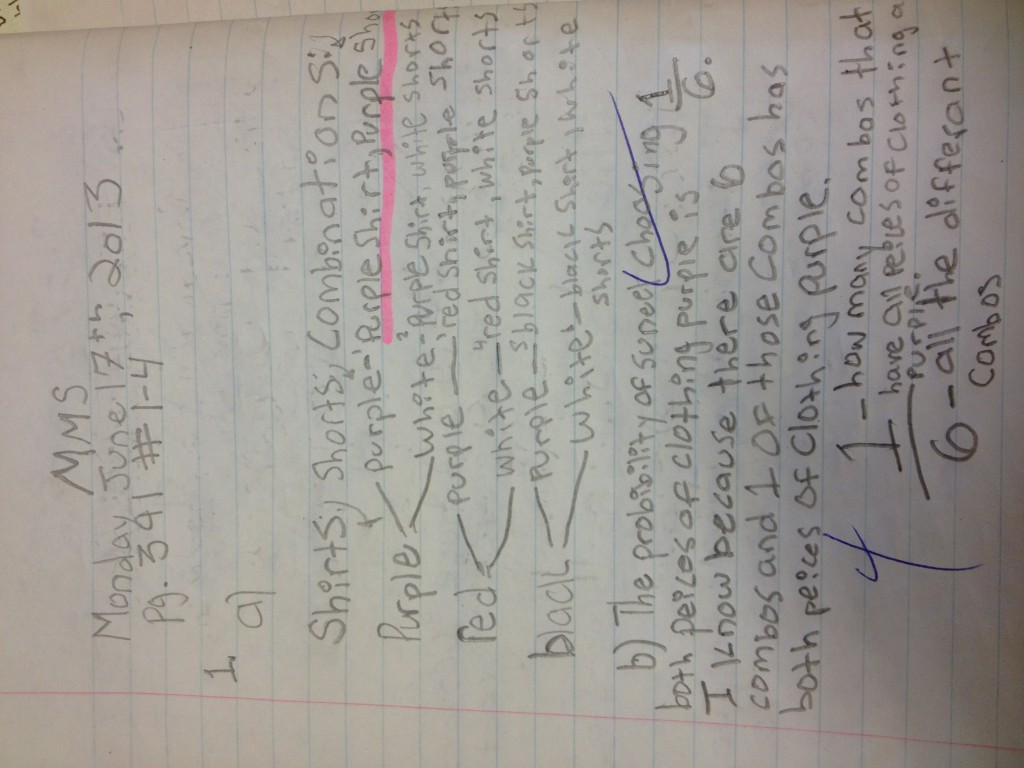 MMS
Monday June 17th, 2013
Pg. 341 #1-4
1.
a)
Shirts, Shorts, Combonations;
Purple purple-1Purple Shirt, Purple Sho
white-2Purple Shirt, white shorts
Red purple-3red Shirt, purple Short
white-4red shirt, white shorts
black Purple-5black Shirt, purple Shorts
white6-black Shirt, white
shorts
b) The probibility of suneel choosing 1/6
both peices of clothing purple is
I know because there are 6
combos and 1 OF those Combos has
both peices Of Clothing purple.
4
1 - how many combos that
have all peices of Clothing a
purple.
6 - all the differant
Combos